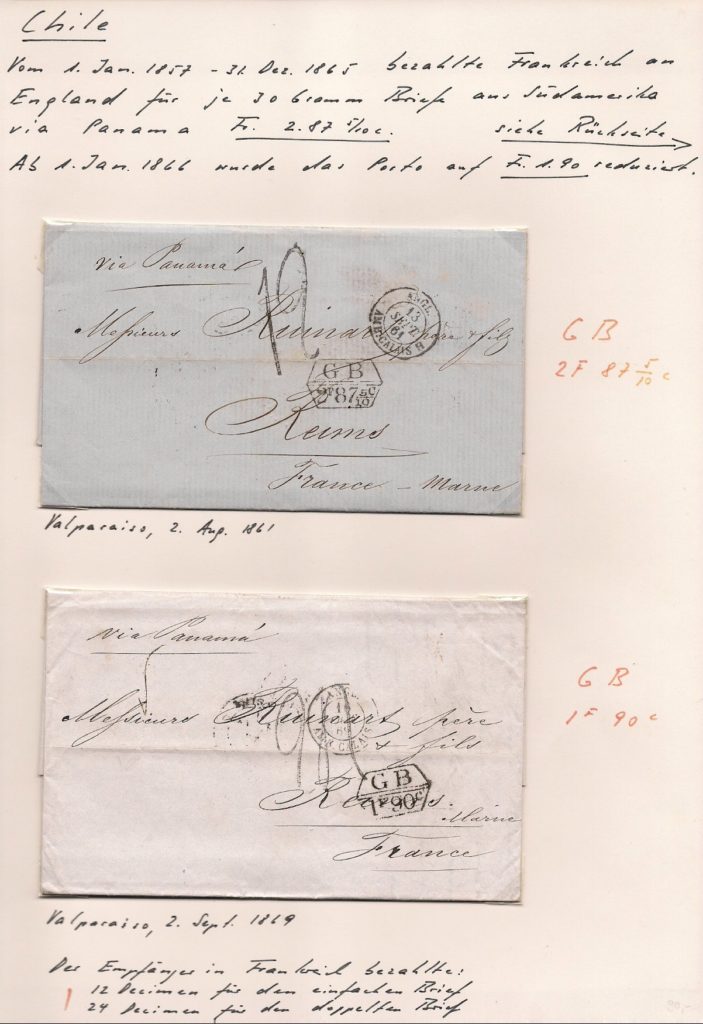 Chile
Vom 1. Jan. 1857 - 31. Dez. 1865 bezahlte Frankreich an
England für je 30 Gramm Briefe aus Südamerika
via Panama Fr. 2.87 5/10 c. siehe Rückseite
Ab 1. Jan. 1866 wurde das Porto auf Fr. 1.90 reduziert.
via Panamá
12
ANGL.
13
SEPT
61
AMB. CALAIS B
Messieurs Ruinart père & fils
GB
2F87 5/10 C
Reims
France - Marne
GB
2F 87 5/10 c
Valparaiso, 2. Aug. 1861
via Panamá
Messieurs Ruinart père
& fils
CALAIS
GB
1F90C
Reims.
Marne
France
GB
1F 90c
Valparaiso, 2. Sept. 1869
Der Empfänger in Frankreich bezahlte:
12 Decimen für den einfachen Brief
24 Decimen für den doppelten Brief
90,-